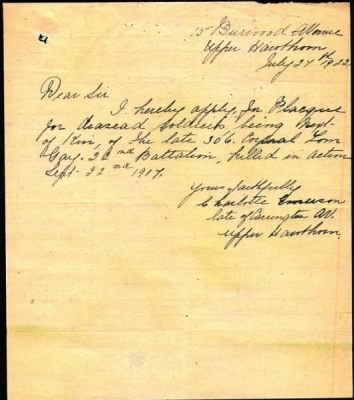 15 Burwood Avenue
Upper Hawthorn
July 24th 1922
Dear Sir
I hereby apply, for Placque
for deasead soldiers being Next
of Kin, of the late 306. Corporal Tom
Gay. 22nd Battalion, killed in action
Sept. 22nd 1917.
Yours faithfully
Charlottie Emerson
late of Carrington AV.
Upper Hawthorn.